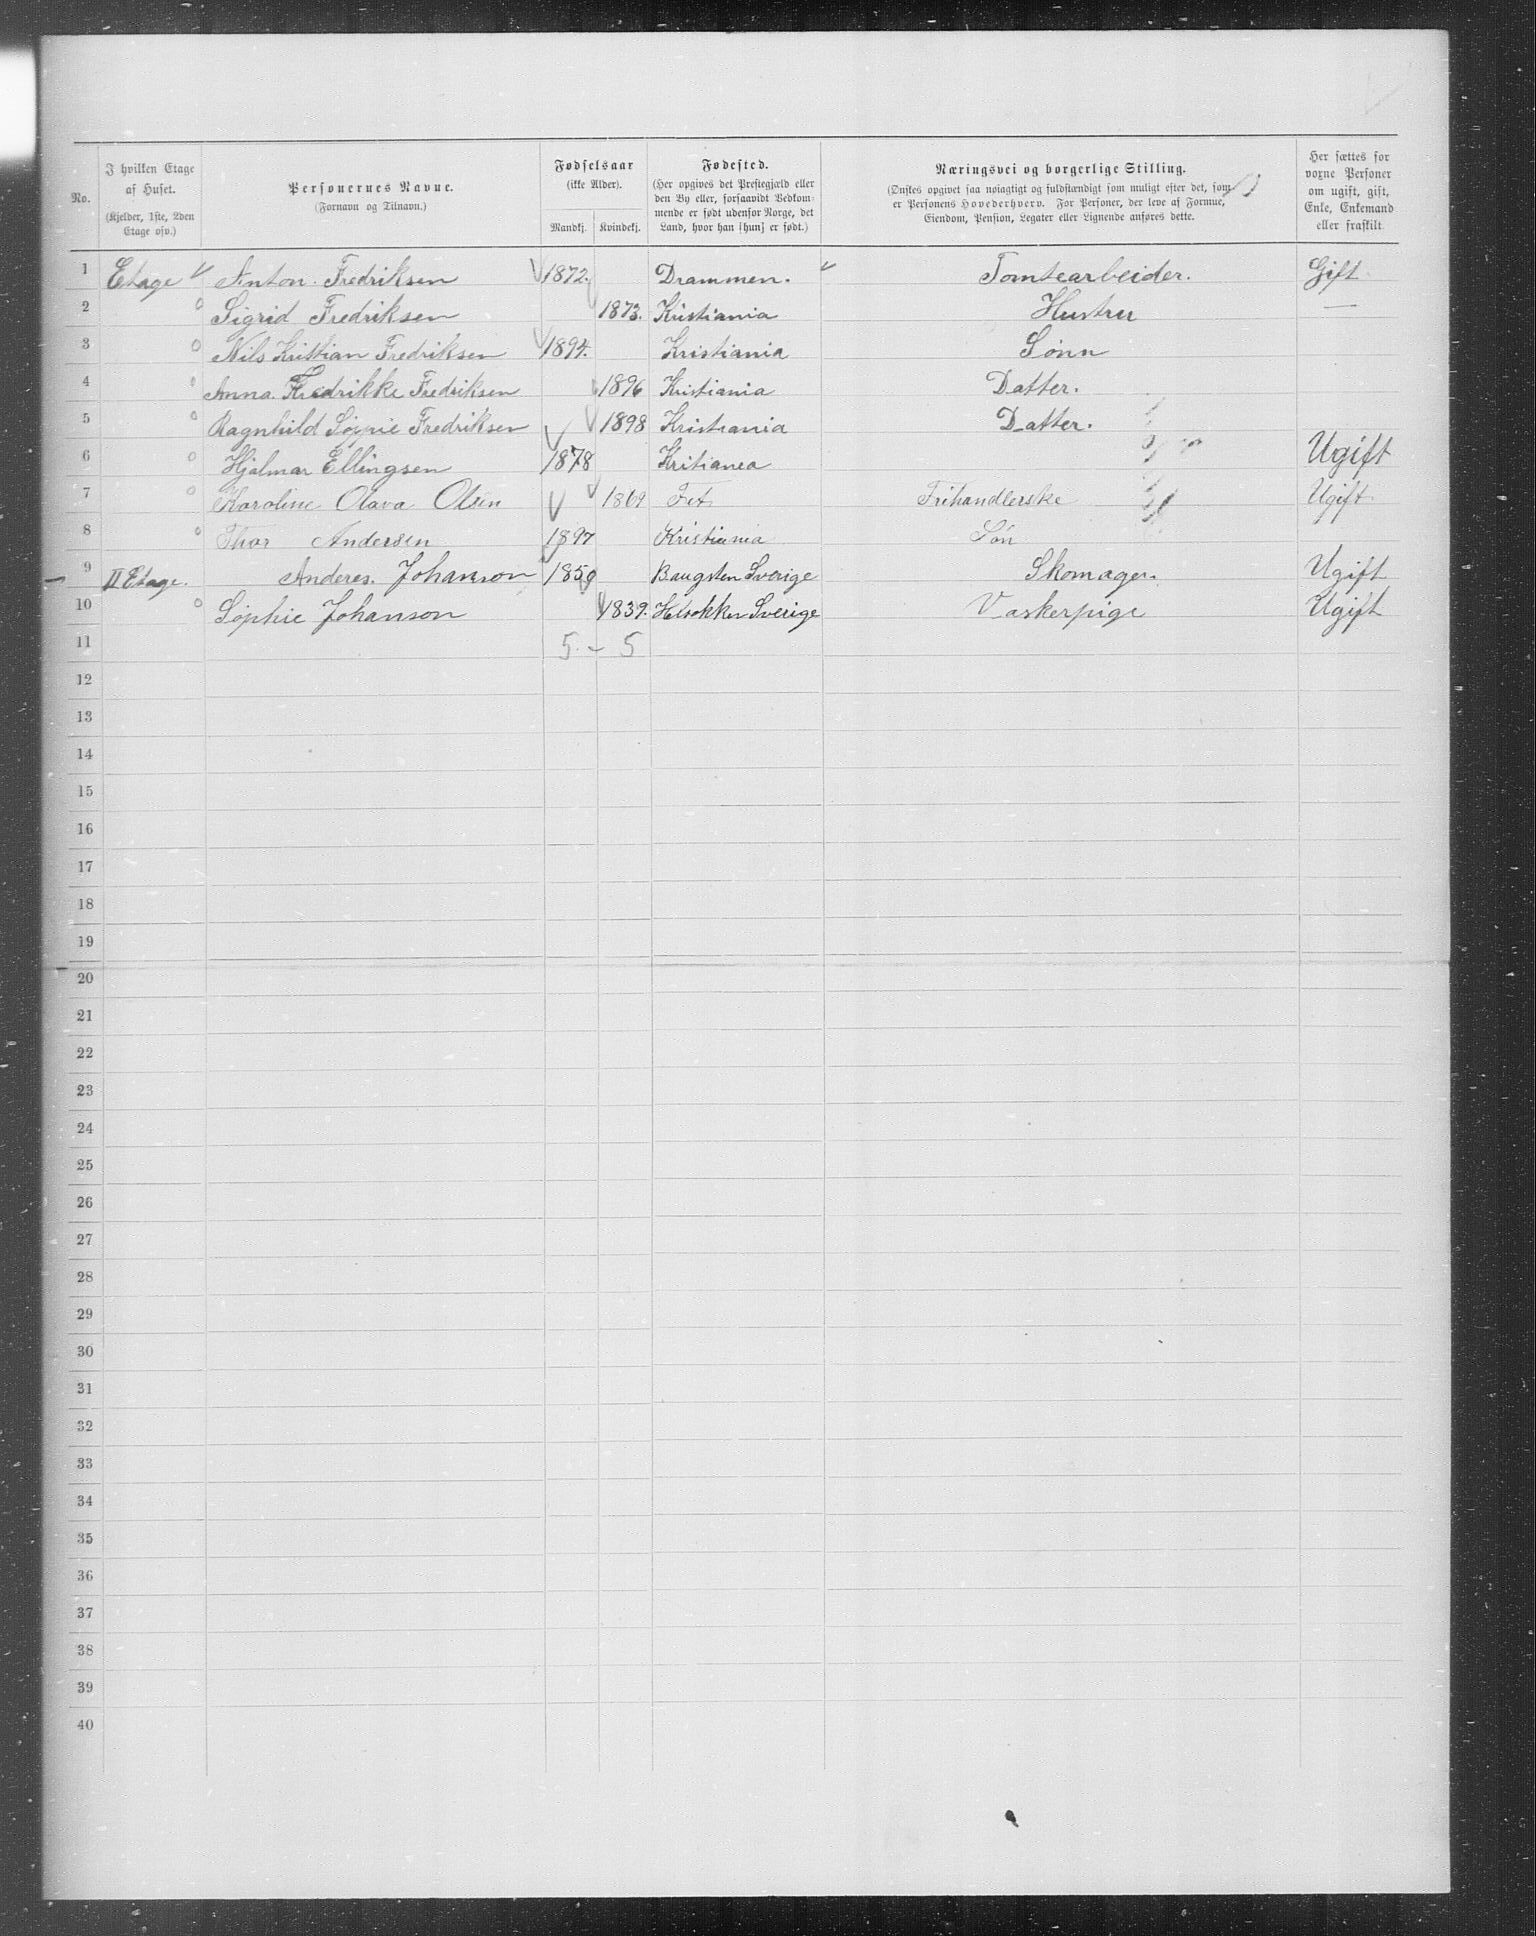 No. | I hvilken Etage af Huset. (Kjelder, 1ste, 2den Etage osv.) | Personernes Navne. (Fornavn og Tilnavn.) | Fødselsaar (ikke Alder). Mandkj. | Kvindekj. | Fødested. (Her opgives det Prestegjæld eller den By eller, forsaavidt Vedkommende er født udenfor Norge, det Land, hvor han [hun] er født.) | Næringsvei og borgerlige Stilling. (Ønskes opgivet saa nøiagtigt og fuldstændigt som muligt efter det, som er Personens Hovederhverv. For Personer, der leve af Formue, Eiendom, Pension, Legater eller Lignende anføres dette.) | Her sættes for voxne Personer om ugift, gift, Enke, Enkemand eller fraskilt.
1 Etage Anton Fredriksen 1872. Drammen. Tomtearbeider. Gift
2 Sigrid Fredriksen 1873. Kristiania Hustru —
3 Nils Kristian Fredriksen 1894. Kristiania Sønn
4 Anna Fredrikke Fredriksen 1896 Kristiania Datter.
5 Ragnhild Sofie Fredriksen 1898 Kristiania Datter.
6 Hjalmar Ellingsen 1878 Kritianea Ugift
7 Karoline Olava Olsen 1869 Fet Frihandlerske Ugift
8 Thor Andersen 1897 Kristiania Søn
9 II Etage. Anderes. Johanson 1850 Sverige Skomager. Ugift
10 Sophie Johanson 1839. Sverige Vaskerpige Ugift
11 5 - 5
12
13
14
15
16
17
18
19
20
21
22
23
24
25
26
27
28
29
30
31
32
33
34
35
36
37
38
39
40